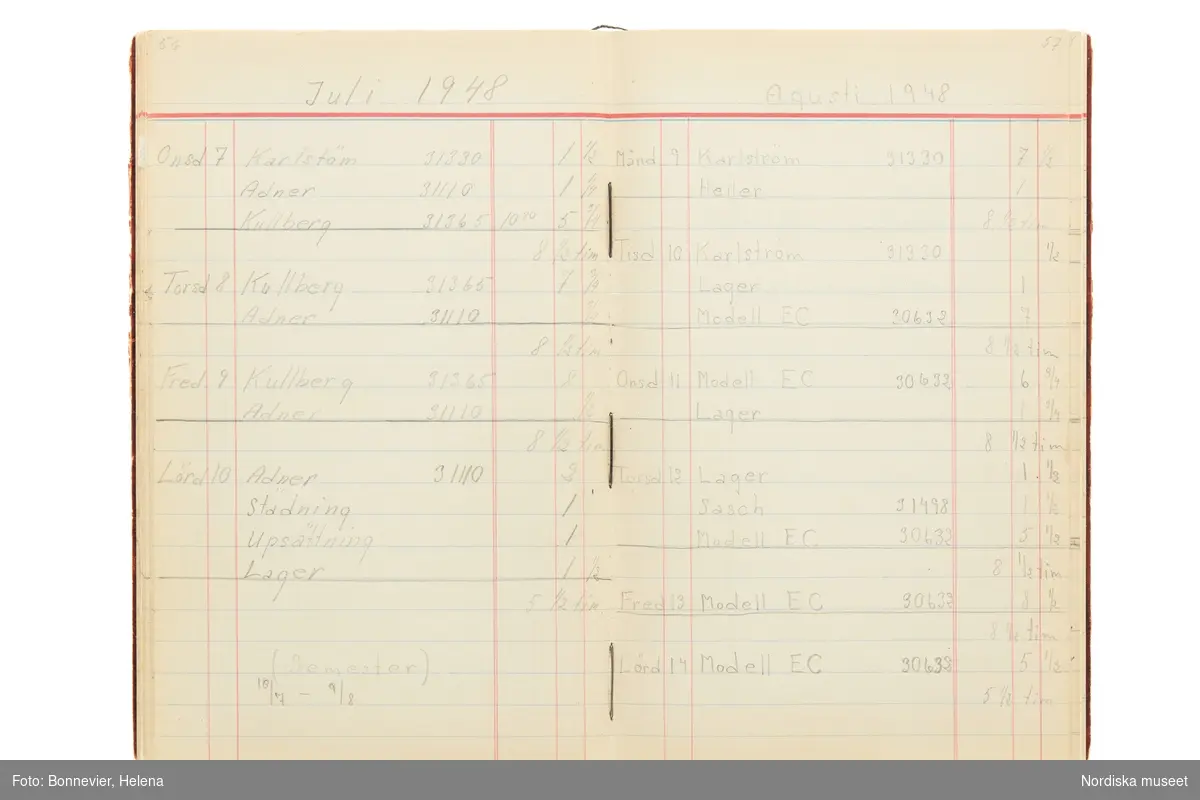 56
Juli 1948
Onsd 7 Karlstöm 31330 1 1/2
Adner 31110 1
Kullberg 31365 10 5
8 1/2 tim
Torsd 8 Kullberg 31365 7 3/4
Adner 31110
8 1/2 tim
Fred 9 Kullberg 31365 8
Adner 31110 1/2
8 1/2 tim
Lörd 10 Adner 31110 2
Städning 1
Upsättning 1
Lager 1 1/2
5 1/2 tim
(Semester)
10/7 – 9/8
57
Agusti 1948
Månd 9 Karlström 31330 7 1/2
Heller 1
8 1/2 tim
Tisd 10 Karlström 31330 1/2
Lager 1
Modell EC 30632 7
8 1/2 tim
Onsd 11 Modell EC 30632 6 3/4
Lager 1 3/4
8 1/2 tim
Torsd 12 Lager 1 1/2
Sasch 31498 1 1/2
Modell EC 30632 5 1/2
8 1/2 tim
Fred 13 Modell EC 30632 8 1/2
8 1/2 tim
Lörd 14 Modell EC 30632 5 1/2
5 1/2 tim
Foto: Bonnevier, Helena
Nordiska museet